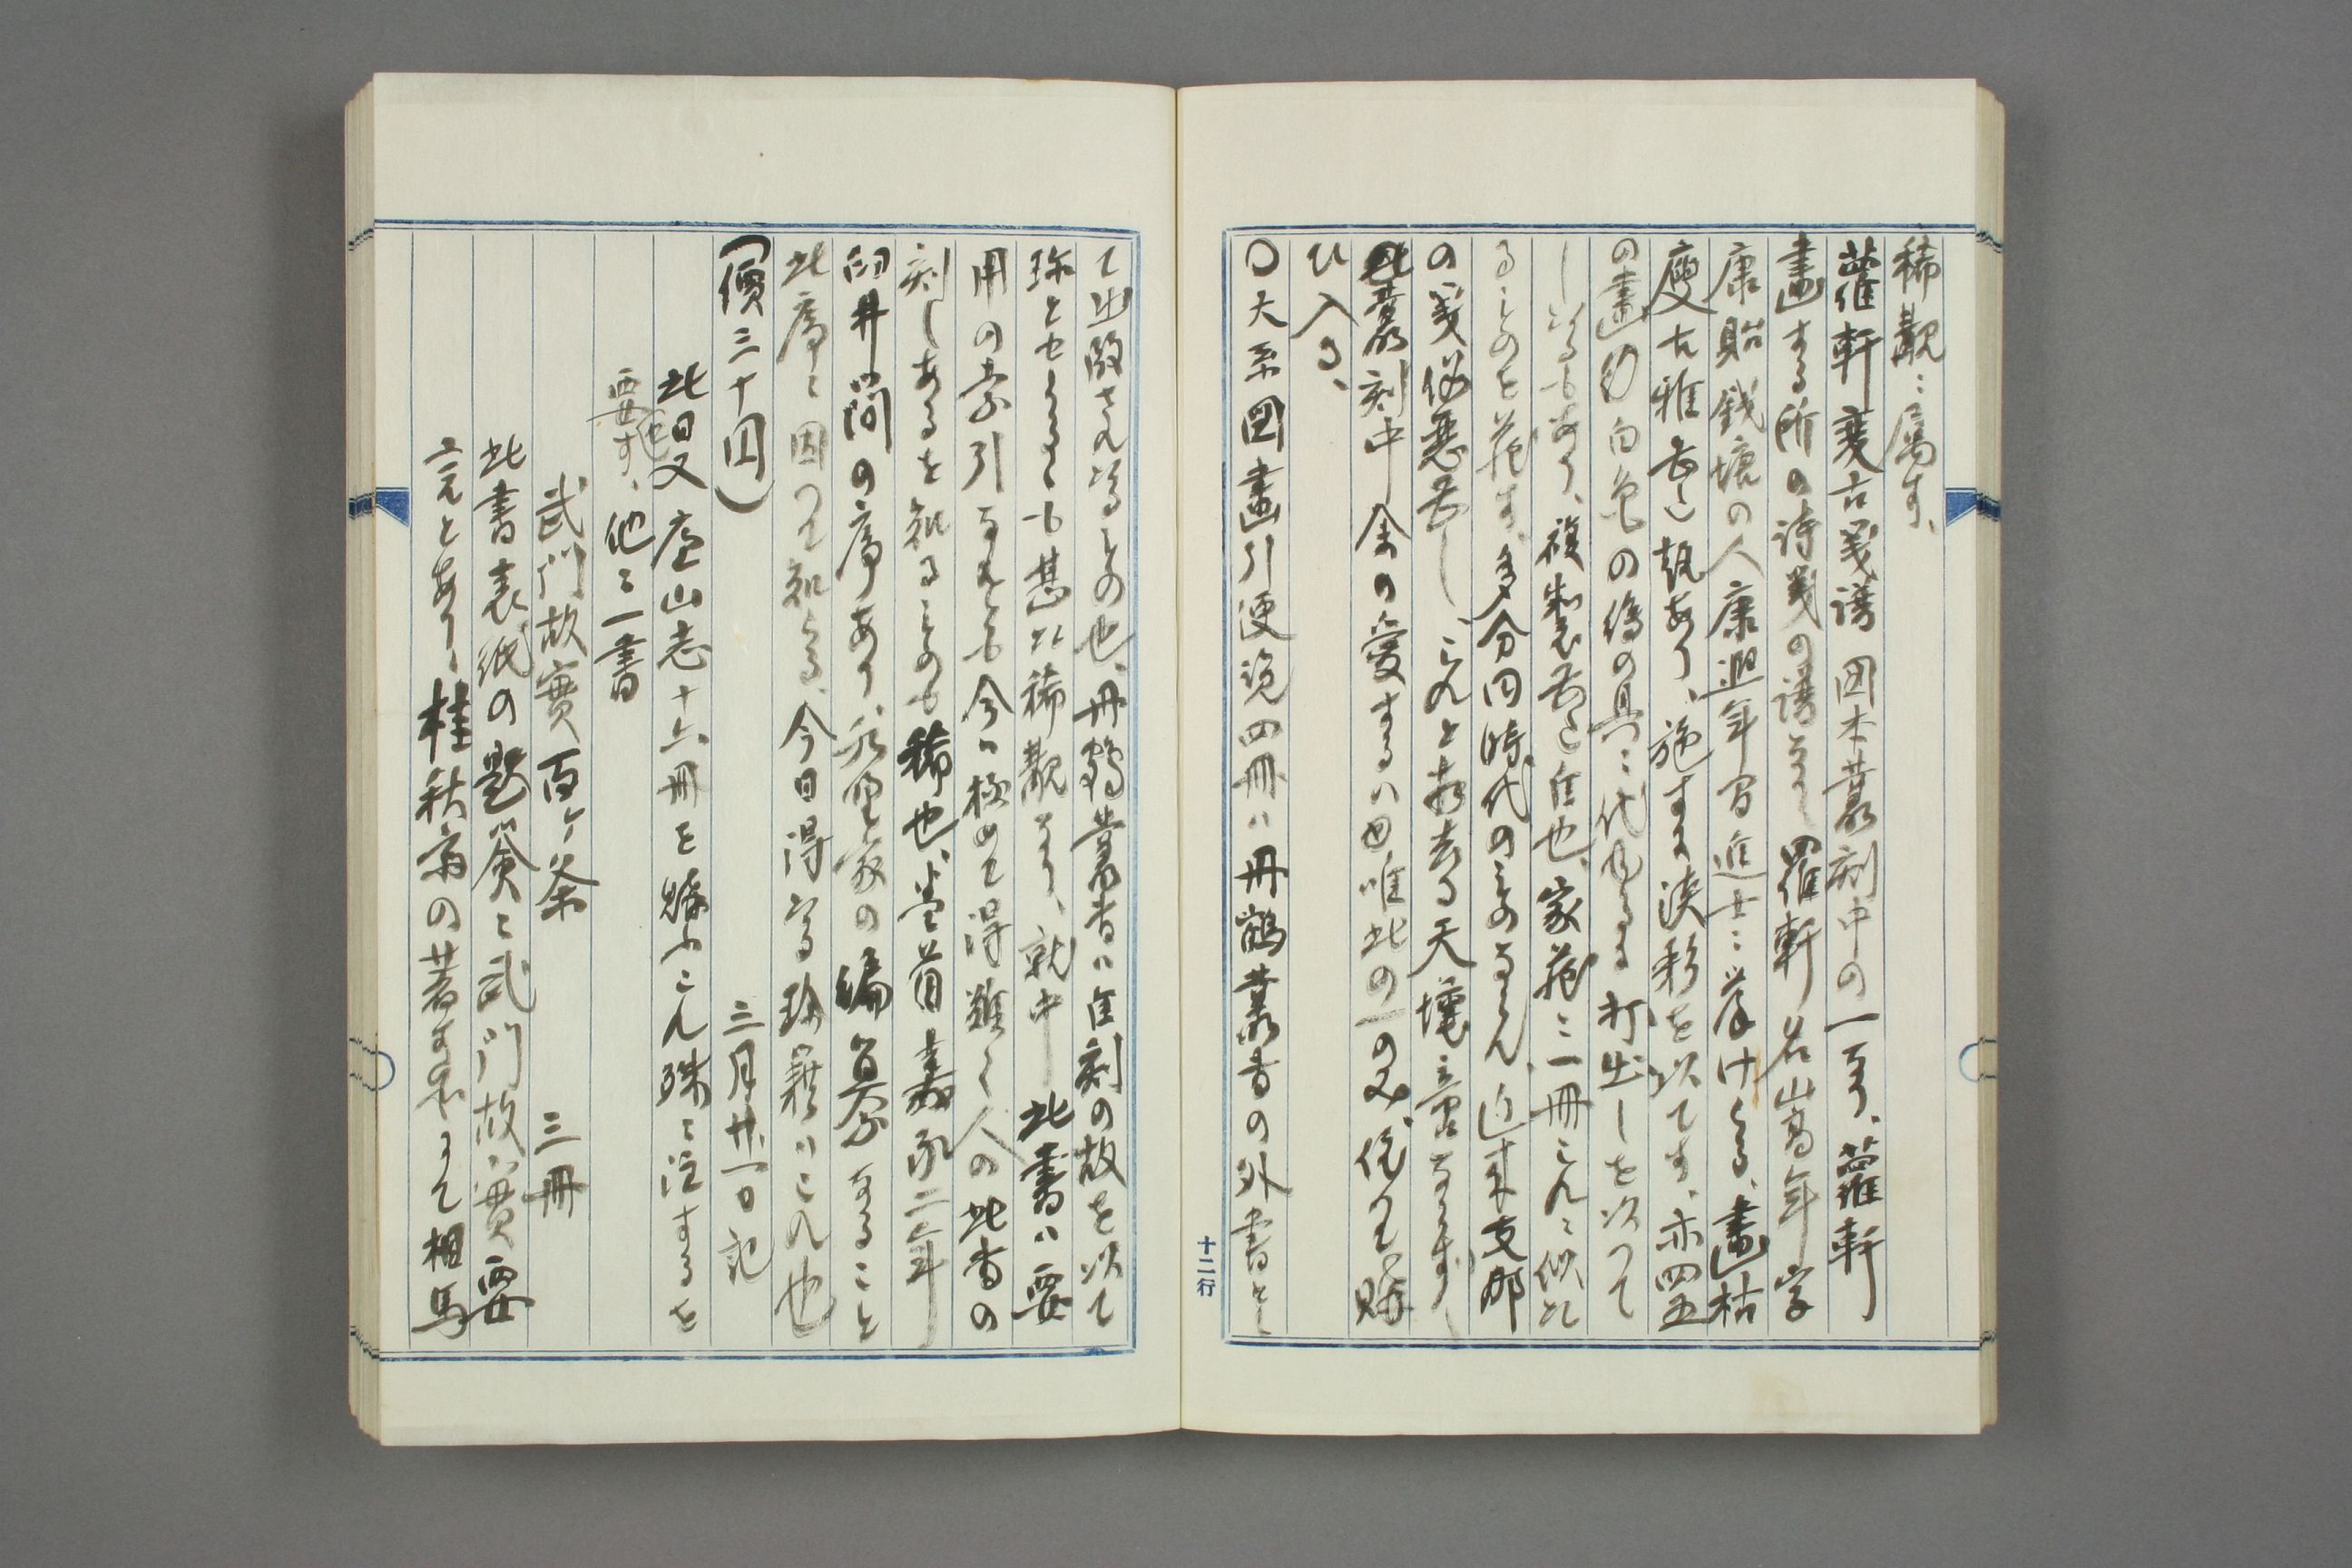 稀覯ニ属す、
蘿軒變古箋譜 図本叢刻中の一なり、蘿軒
畫する所の詩箋の譜なり 羅軒名山嵩年字
康貽錢塘の人康煕年間進士ニ挙けらる、畫枯
痩古雅甚だ趣あり、施すに淡彩を以てす、亦四五
の畫 白色の偽の具ニ代ふるに打出しを以つて
しゐるもあり、複製甚だ佳也、家蔵ニ一冊これニ似た
るものを蔵す、多分同時代のものならん、近来支那
の箋俗悪甚し、これと相去る天壤啻ならず
此叢刻中余の愛するハ唯此の一のみ、依りて購
ひ入る、
〇大系図畫引便覧四冊ハ丹鶴叢書の外書とし
て出版されゐるもの也、丹鶴叢書ハ佳刻の故を以て
珍とせらるゝも甚た稀覯なり、就中此書ハ要
用の索引なれども今ハ極めて得難く人の此書の
刻しあるを知るものも稀也、巻首嘉永二年
臼井の序あり、水野家の編纂なること
此序に因つて知らる、今日得たる珍籍ハこれ也
(價三十円)
三月廿一日記
此日又廬山志十六冊を購ふこれ殊に注するを
要す、他に一書
武門故實百ヶ条 三冊
此書表紙の題簽に武門故實要
言とあり、桂秋斎の著すところにて相馬
十二行